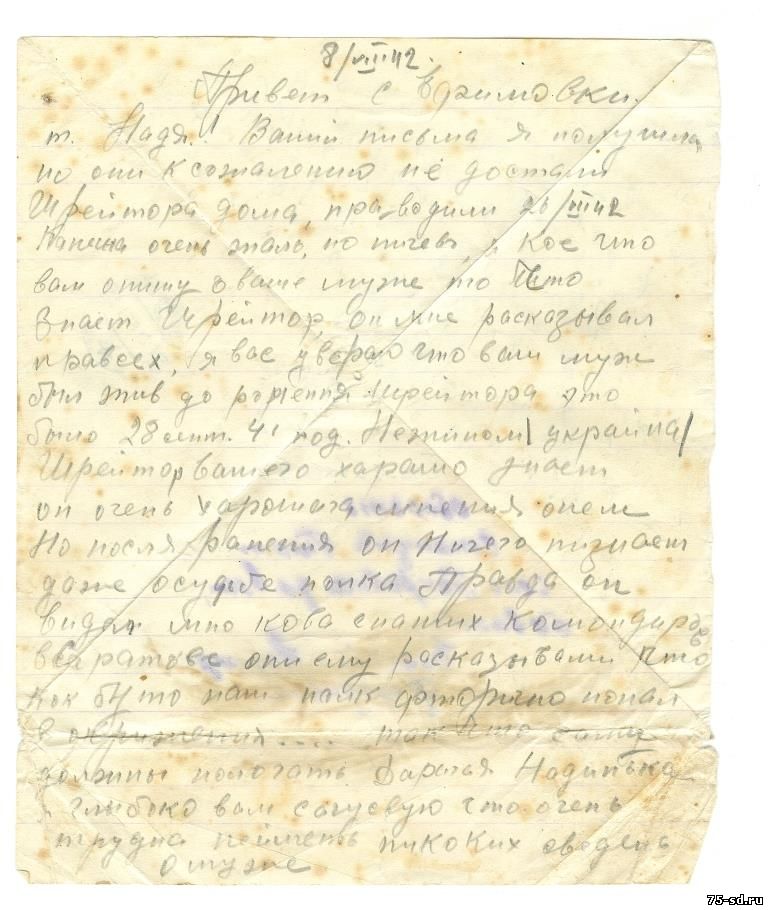 8/VIII 42.
Привет с Ефимовки.
т. Надя! Ваши письма я получила
но они к сожалению не достали
Шрейтора дома, праводили 26/VII 42
очень жаль, но ничево, я кое что
вам опишу о ваше муже то што
знает Шрейтор, он мне расказывал
правсех, я вас уверяю что ваш муж
был жив до ранения Шрейтора это
было 28 сент. 41 под. Нежином /украйна/
Шрейтор вашего харашо знает
он очень харошага мнения онем
Но после ранения он Ничего низнает
даже осудьбе полка Правда он
видал кова снаших командиров
всаратове они ему расказывали что
как буто наш полк фторично попал
в окружения.... так что сами
должны пологать Дарагая Надинька
я глибоко вам сачуствую что очень
трудна неиметь никоких сведень
о муже
75-sd.ru